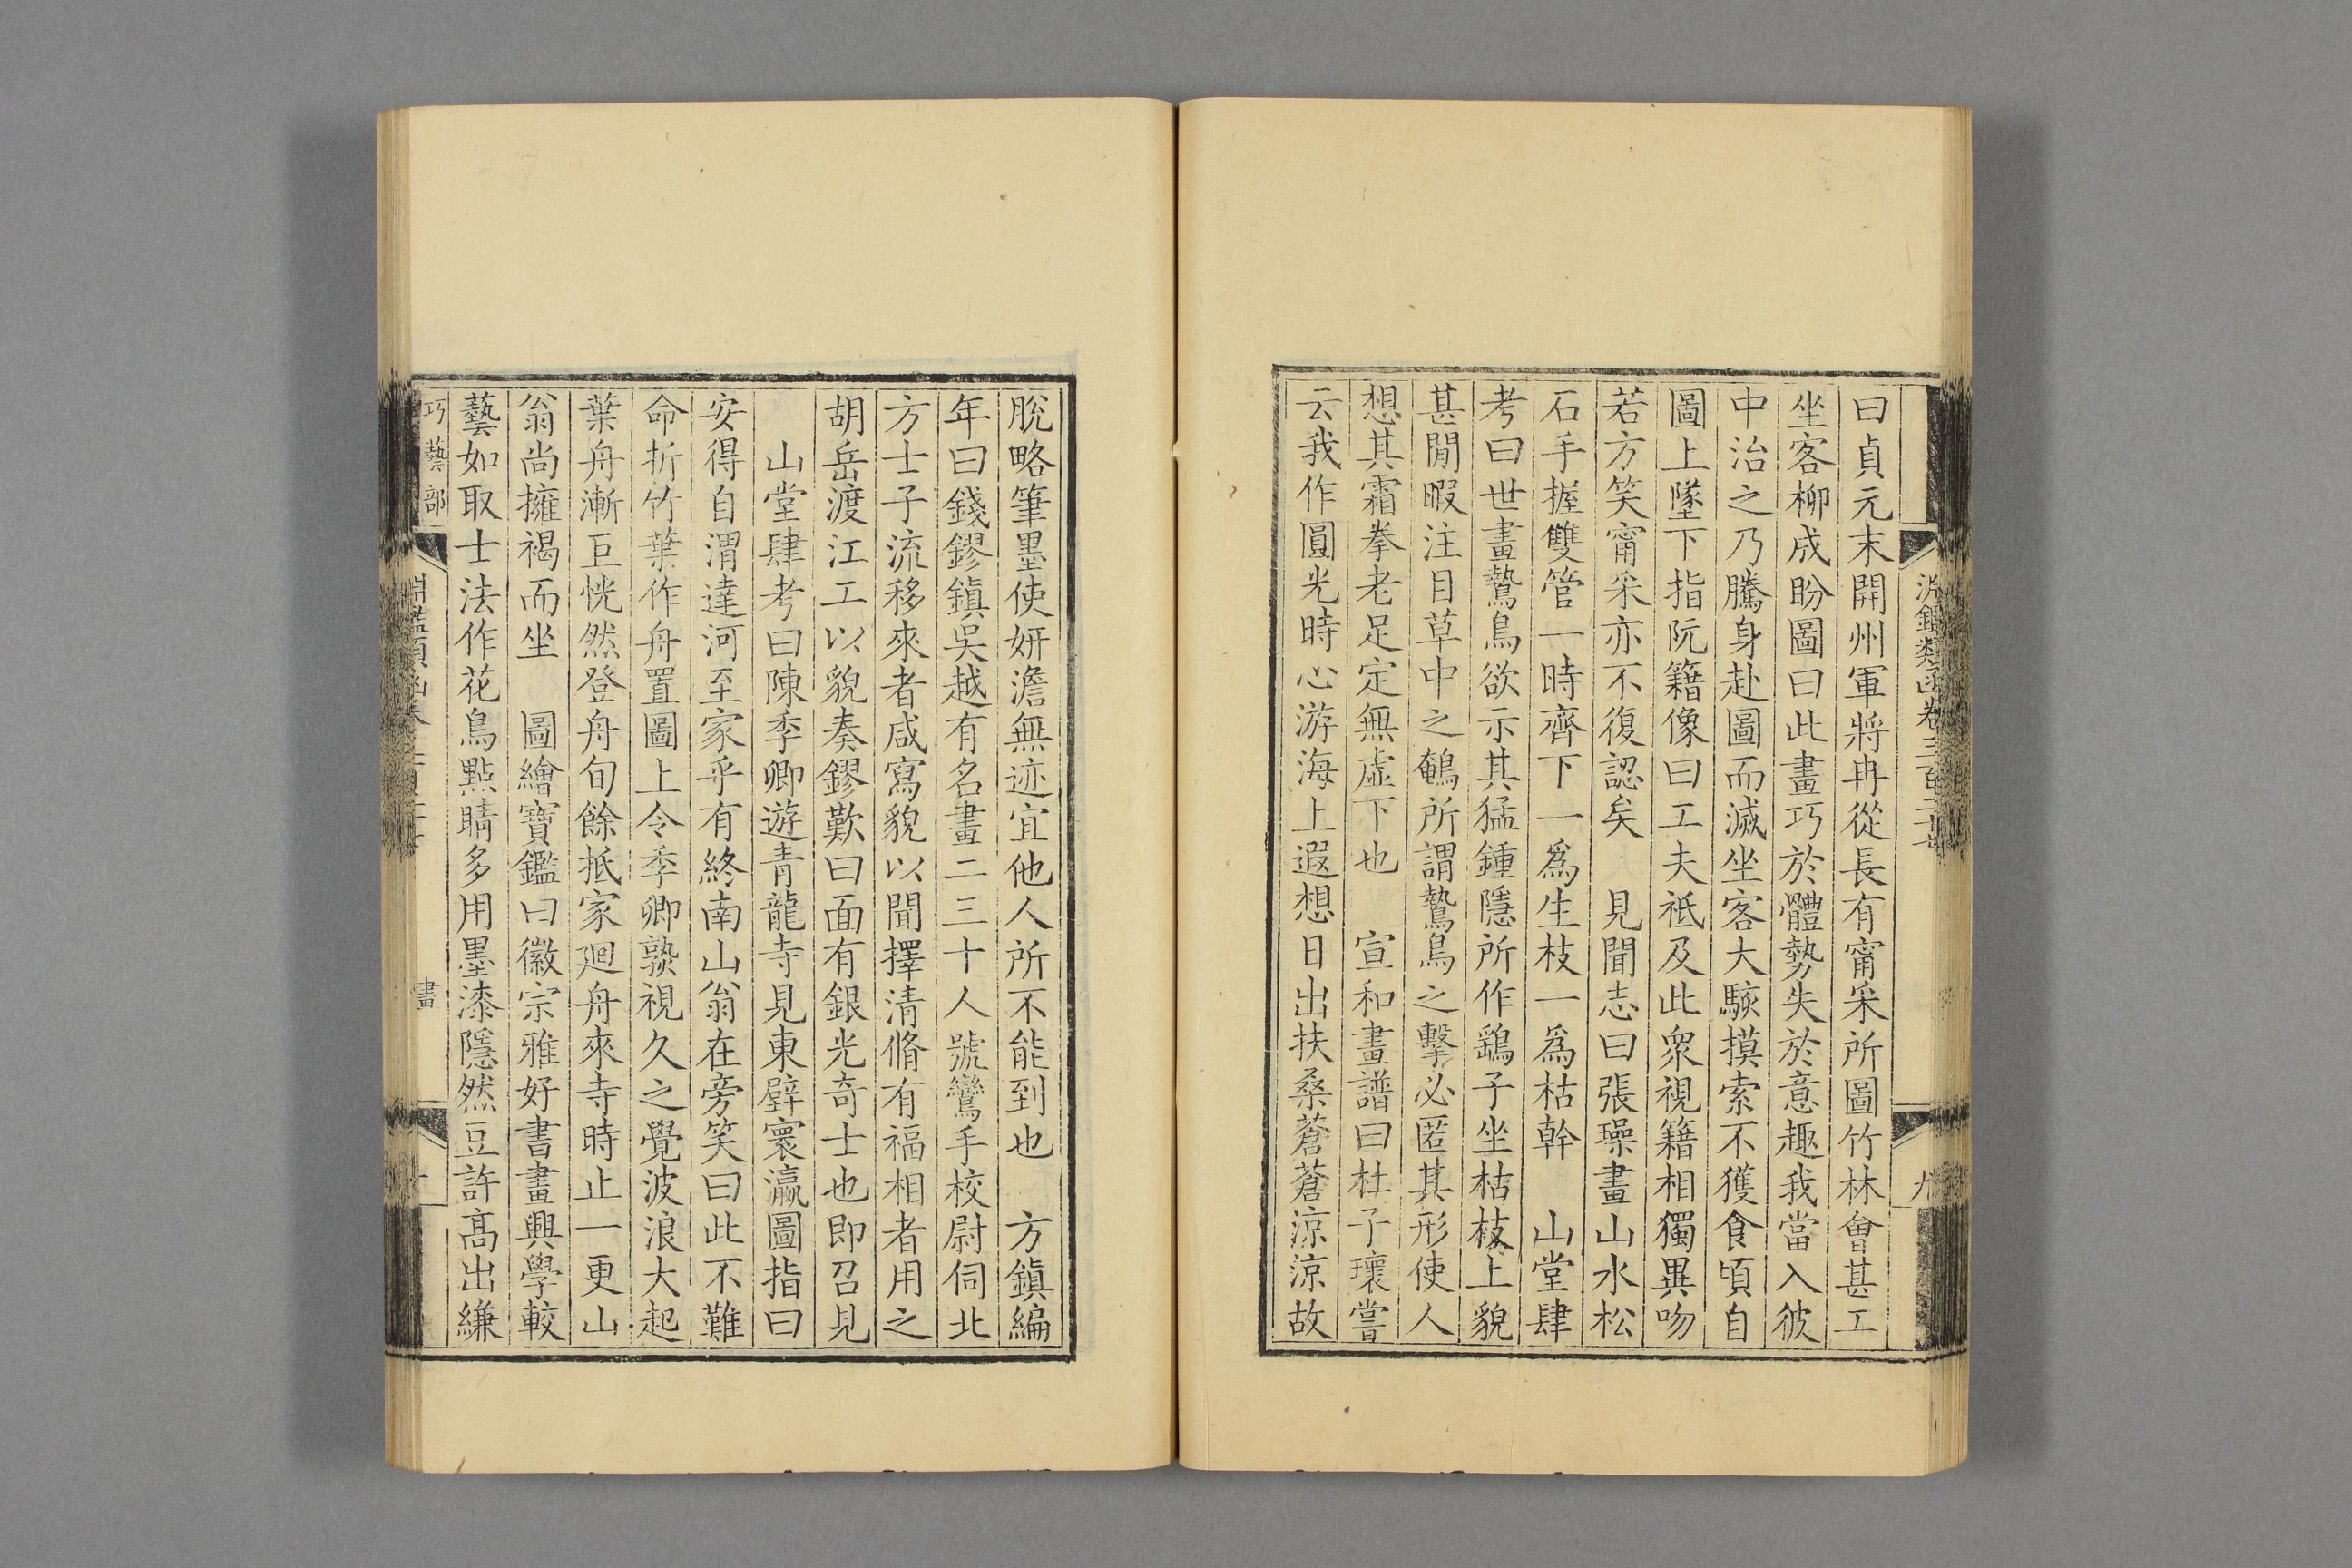 曰貞元末開州軍將冉從長有甯采所圖竹林會甚工
坐客柳成盼圖曰此畫巧於體勢失於意趣我當入彼
中治之乃騰身赴圖而滅坐客大駭摸索不獲食頃自
圖上墜下指阮籍像曰工夫祗及此衆視籍相獨異吻
若方笑甯采亦不復認矣 見聞志曰張璪畫山水松
石手握雙管一時齊下一爲生枝一爲枯幹 山堂肆
考曰世畫鷙鳥欲示其猛鍾隱所作鷂子坐枯枝上貌
甚閒暇注目草中之鵪所謂鷙鳥之擊必匿其形使人
想其霜拳老足定無虛下也 宣和畫譜曰杜子瓌嘗
云我作圓光時心游海上遐想日出扶桑蒼蒼涼涼故
脫略筆墨使妍澹無迹宜他人所不能到也 方鎮編
年曰錢鏐鎮吳越有名畫二三十人號鸞手校尉伺北
方士子流移來者咸寫貌以聞擇清脩有福相者用之
胡岳渡江工以貌奏鏐歎曰面有銀光奇士也即召見
山堂肆考曰陳季卿遊青龍寺見東壁寰瀛圖指曰
安得自渭達河至家乎有終南山翁在旁笑曰此不難
命折竹葉作舟置圖上令季卿孰視久之覺波浪大起
葉舟漸巨恍然登舟旬餘抵家廻舟來寺時止一更山
翁尚擁褐而坐 圖繪寶鑑曰徽宗雅好書畫興學較
藝如取士法作花鳥點睛多用墨漆隱然豆許高出縑
巧藝部
畫